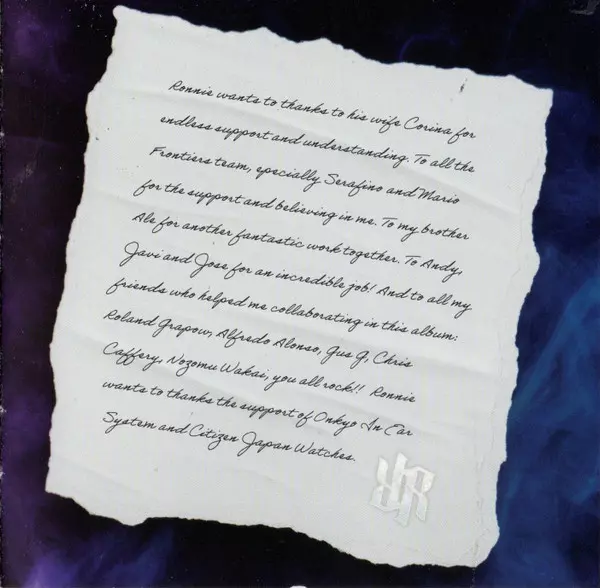 Ronnie wants to thanks to his wife Corina for
endless support and understanding. To all the
Frontiers team, epecially Serafino and Mario
for the support and believing in me. To my brother
Ale for another fantastic work together. To Andy,
Javi and Jose for an incredible job! And to all my
friends who helped me collaborating in this album:
Roland Grapow, Alfredo Alonso, Gus G, Chris
Caffery, Nozomu Wakai, you all rock!! Ronnie
wants to thanks the support of Onkyo In Ear
System and Citizen Japan Watches.